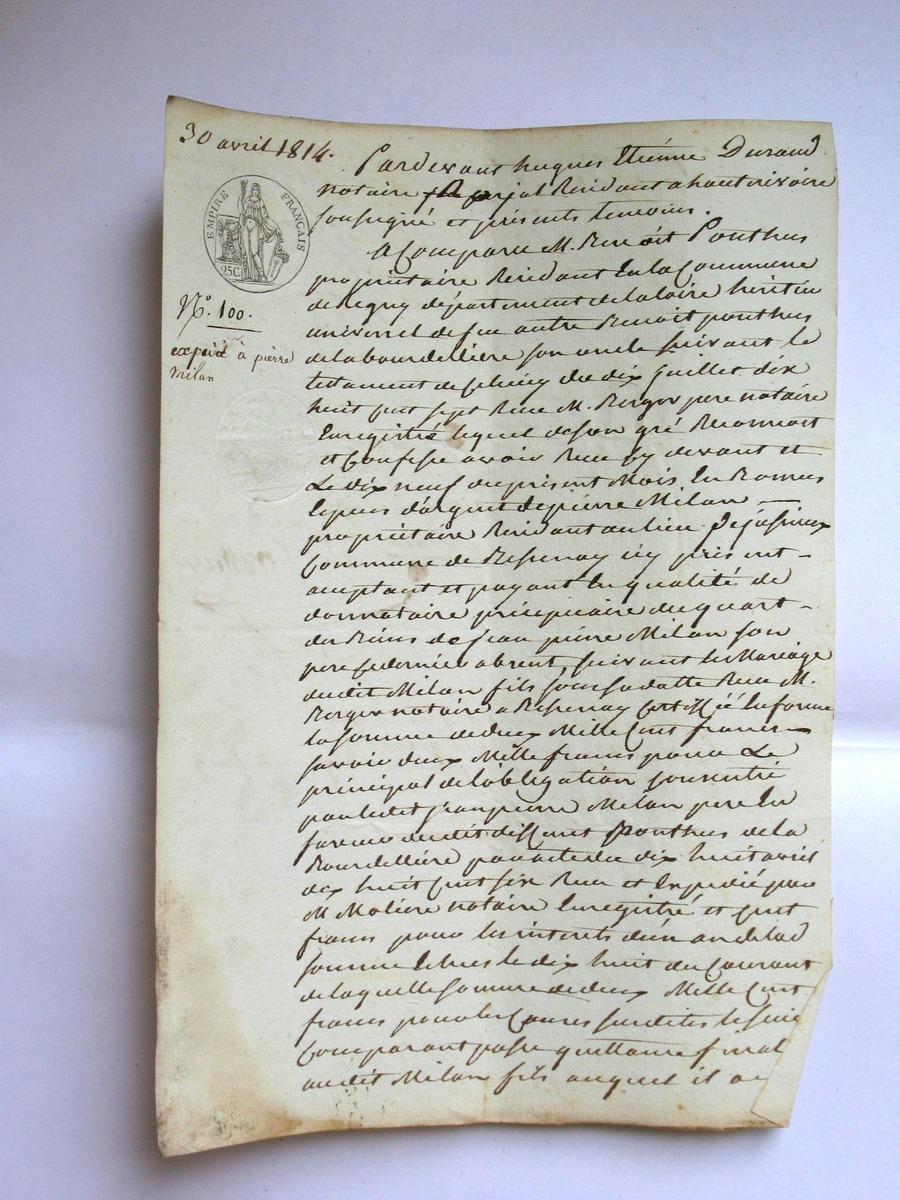 30 avril 1814.
Pardevant hugues Etiénne Durand
notaire Residant a hautrivoire
soussigné et présents temoins.
EMPIRE FRANÇAIS
25C.
A Comparu M. Benoit Ponthus
propriétaire Residant En la Commune
de Regny département de la loire héritier
N.º 100.
universel de feu autre Benoit ponthus
expedié à pierre
de la bourdellière son oncle suivant le
Milan
testament de du dix juillet dix
huit cent sept Recu M. Berger pere notaire
Enregistré lequel de son gré Reconnoit
et Confesse avoir Recu cy devant et
Le dix neuf du present Mois En Bonnes
Especes d'argent de pierre Milan
propriétaire Residant au lieu
Commune de icy présent
acceptant et payant En qualité de
donnataire précipuaire du quart
des Biens de Jean pierre Milan son
pere ce dernier absent, suivant le Mariage
dudit Milan fils sous sa datte Recu M.
Berger notaire a En forme
la somme de deux Mille Cent francs
savoir deux Mille francs pour Le
principal de l'obligation
par ledit Jean pierre Milan pere En
faveur dudit deffunt Ponthus de la
Bourdellière par acte du dix huit avril
dix huit cent six Recu et Expedié par
M. Moliere notaire Enregistré et cent
francs pour les interets d'un an de lad
somme Echus le dix huit du Courant
de laquelle somme de deux Mille Cent
francs pour les Causes susdites le sieur
Comparant passe quittance final
audit Milan fils auquel il a